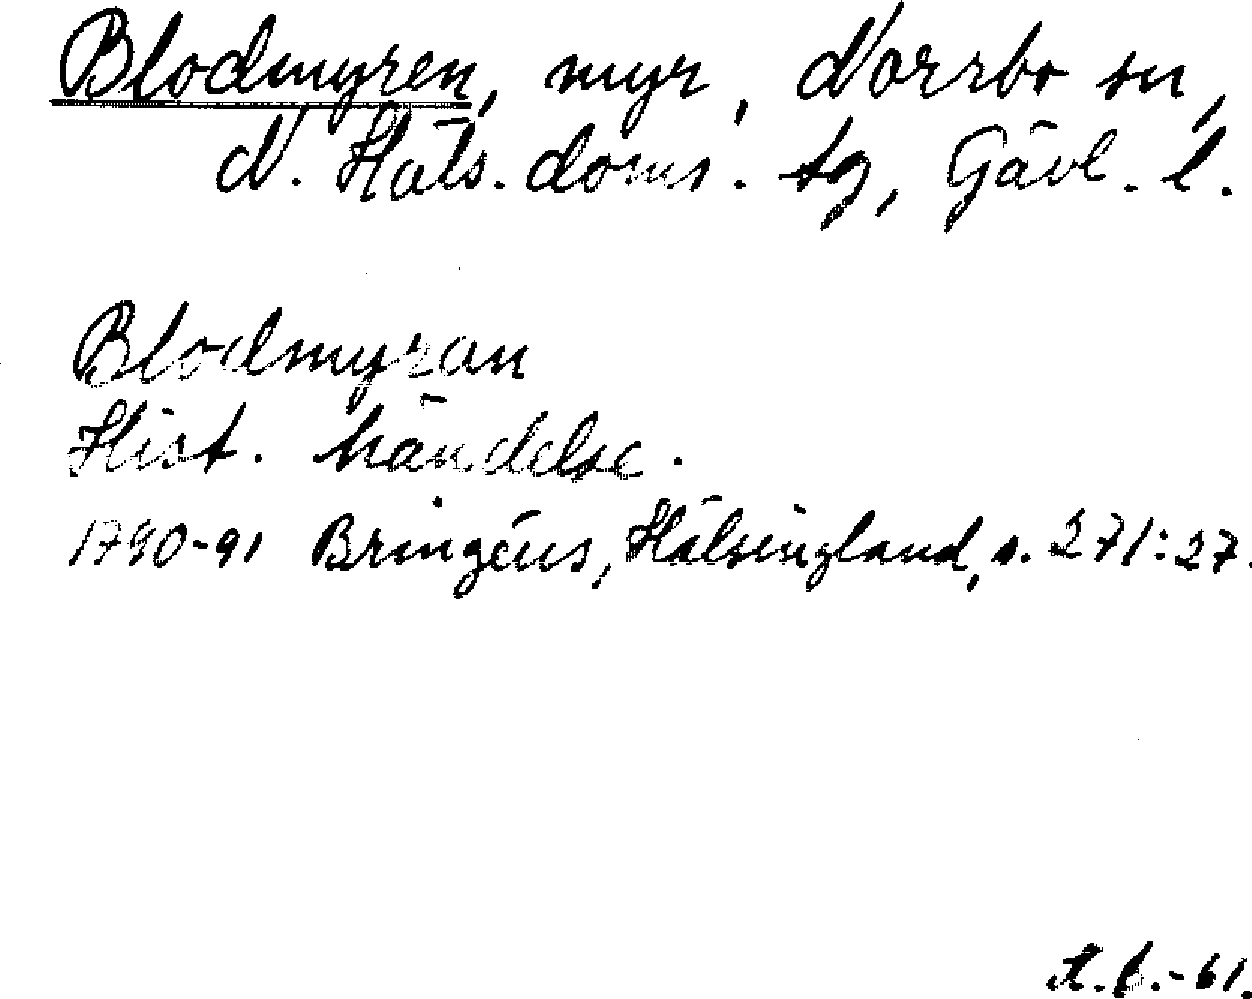 Blodmyren, myr, Norrbo sn,
N. Häls. doms. tg, Gävl. l.
Blodmyran
Hist. händelse.
1790-91 Bringéus, Hälsingland, s. 271:27.
-61.